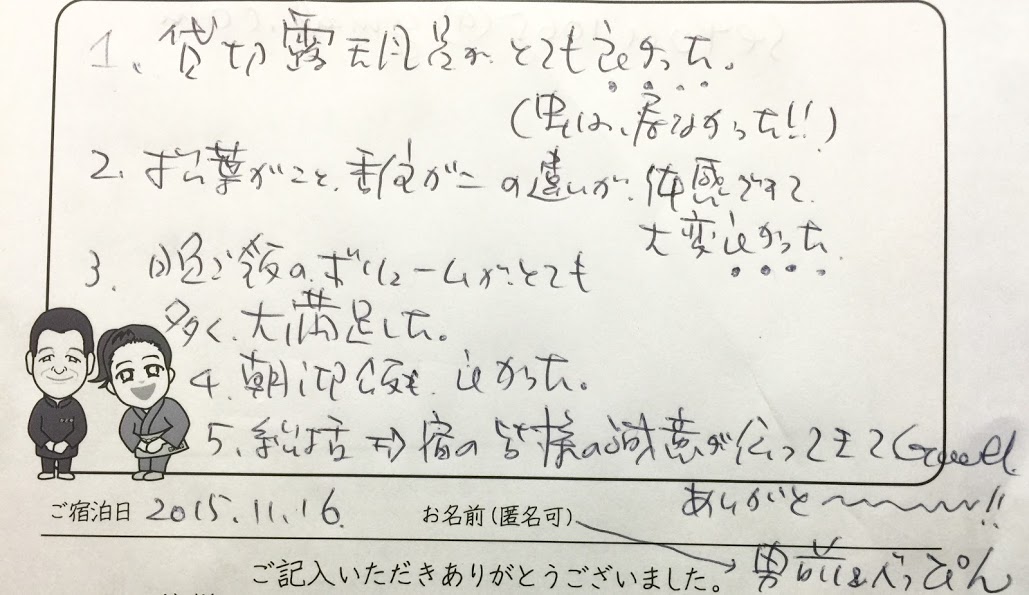 1、貸切露天風呂が、とても良かった。
(虫は、居なかった!!)
2、松葉がこと、香住がこの違いが、体感できて、
大変良かった
3、晩ご飯の、ボリュームが、とても
多く、大満足した。
4、朝ご飯も、良かった。
5、総括 ⇒ 宿の皆様の誠意が伝ってきてGood.
ありがと〜〜〜!!
ご宿泊日 2015.11.16. お名前(匿名可)
男前&べっぴん
ご記入いただきありがとうございました。